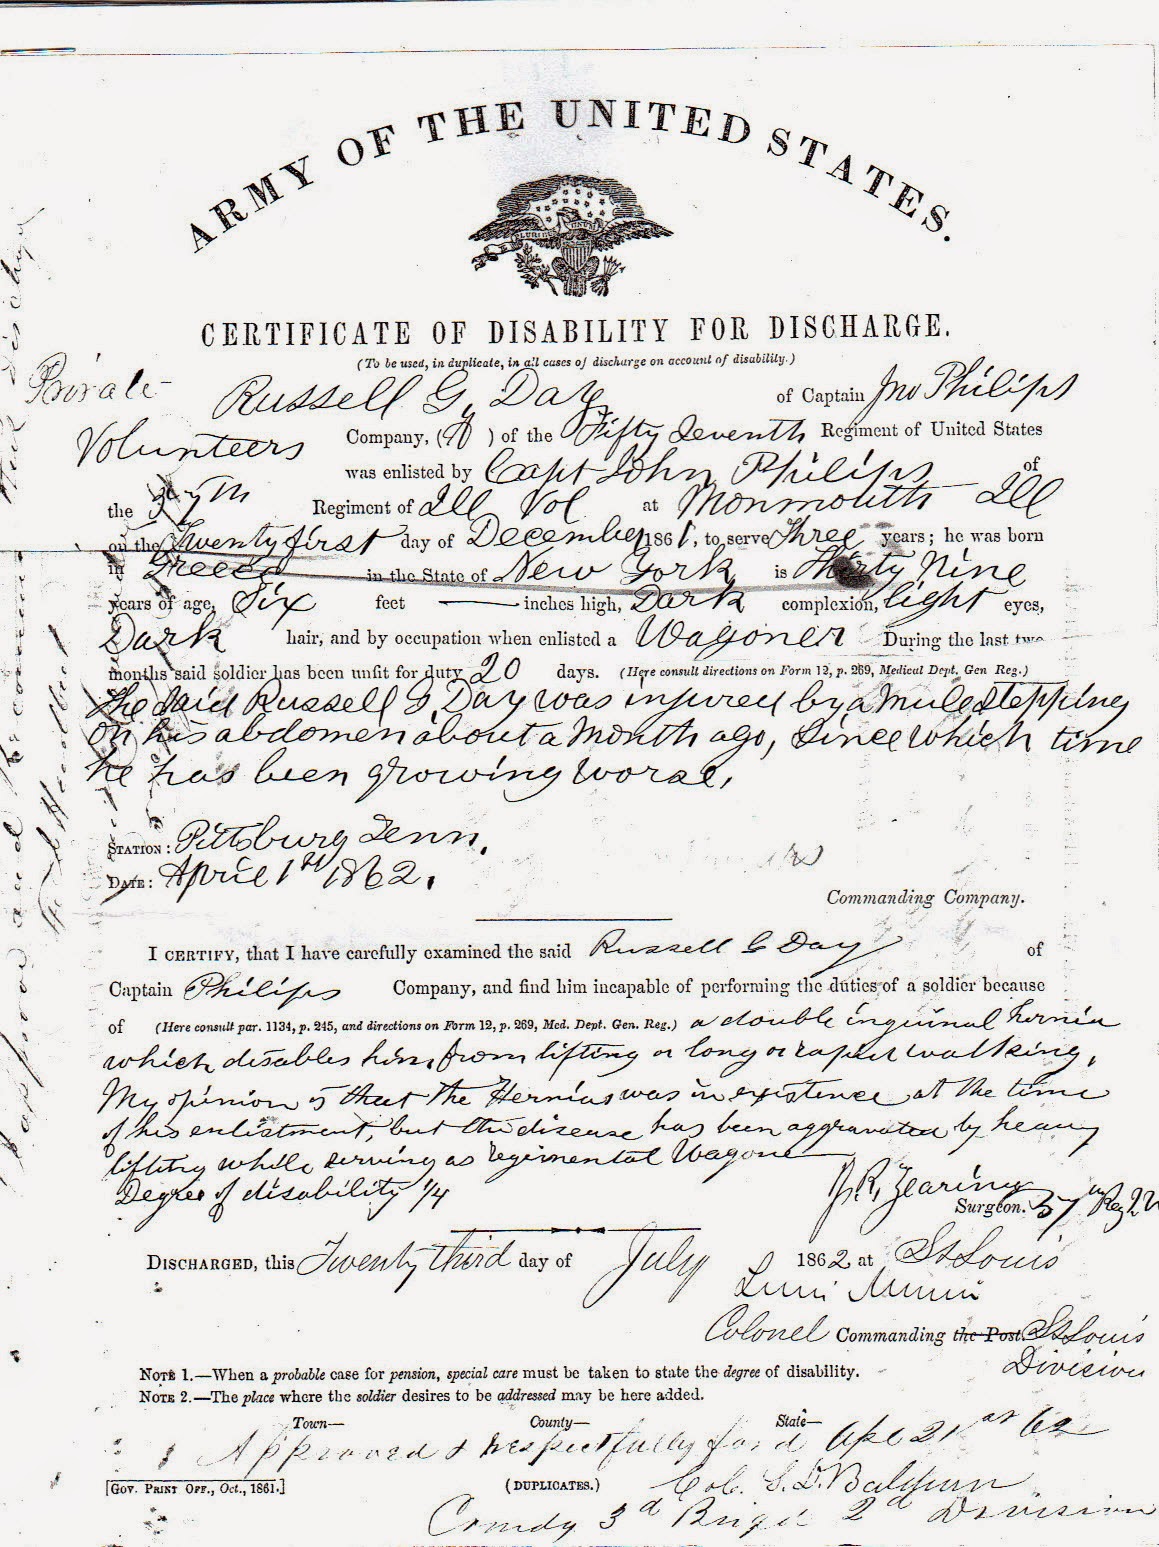 ARMY OF THE UNITED STATES.
CERTIFICATE OF DISABILITY FOR DISCHARGE.
(To be used, in duplicate, in all cases of discharge on account of disability.)
Private Russell G. Day of Captain Jno Philips
Volunteers Company, (A) of the Fifty Seventh Regiment of United States
was enlisted by Capt John Philips of
the 57th Regiment of Ill Vol at Monmouth Ill
on the Twenty first day of December 1861, to serve Three years; he was born
in Greece in the State of New York, is Thirty Nine
years of age, Six feet — inches high, Dark complexion, light eyes,
Dark hair, and by occupation when enlisted a Wagoner During the last two
months said soldier has been unfit for duty 20 days. (Here consult directions on Form 12, p. 269, Medical Dept. Gen Reg.)
The said Russell G. Day was injured by a Mule stepping
on his abdomen about a Month ago, Since which time
he has been growing worse,
STATION: Pittsburg Tenn.
DATE: April 1st 1862.
Commanding Company.
I CERTIFY, that I have carefully examined the said Russell G Day of
Captain Philips Company, and find him incapable of performing the duties of a soldier because
of (Here consult par. 1134, p. 245, and directions on Form 12, p. 269, Med. Dept. Gen. Reg.) a double inguinal hernia
which disables him from lifting or long or rapid walking,
My opinion is that the Hernias was in existence at the time
of his enlistment, but the disease has been aggravated by heavy
lifting while serving as regimental Wagoner
Degree of disability 1/4
J. R. Zearing
Surgeon. 57th Reg
DISCHARGED, this Twenty third day of July 1862 at St Louis
Colonel Commanding the Post. St Louis
Division
NOTE 1.—When a probable case for pension, special care must be taken to state the degree of disability.
NOTE 2.—The place where the soldier desires to be addressed may be here added.
Town— County— State—
Approved & respectfully ford Apl 21st 62
[GOV. PRINT OFF., Oct., 1861.] (DUPLICATES.) Col. S. D. Baldwin
Comdg 3d Brigd 2d Division